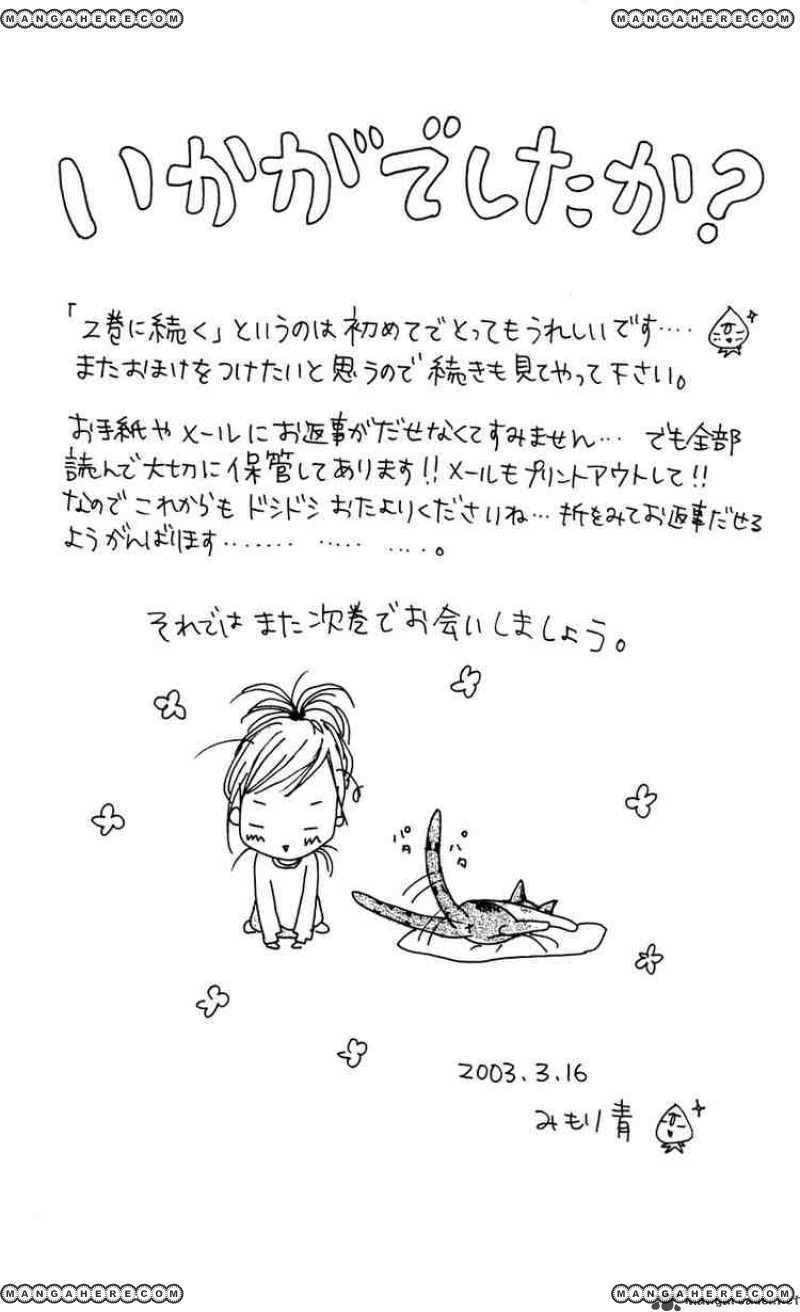 MANGAHERE.COM MANGAHERE.COM
いかがでしたか?
「2巻に続く」というのは初めてでとってもうれしいです‥‥
またおまけをつけたいと思うので続きも見てやって下さい。
お手紙やメールにお返事がだせなくてすみません‥‥ でも全部
読んで大切に保管してあります!!メールもプリントアウトして!!
なのでこれからもドシドシおたよりくださいね‥‥折をみてお返事だせる
ようがんばります‥‥‥‥ ‥‥‥ ‥‥。
それではまた次巻でお会いしましょう。
パタ パタ
2003.3.16
みもり青
MANGAHERE.COM MANGAHERE.COM